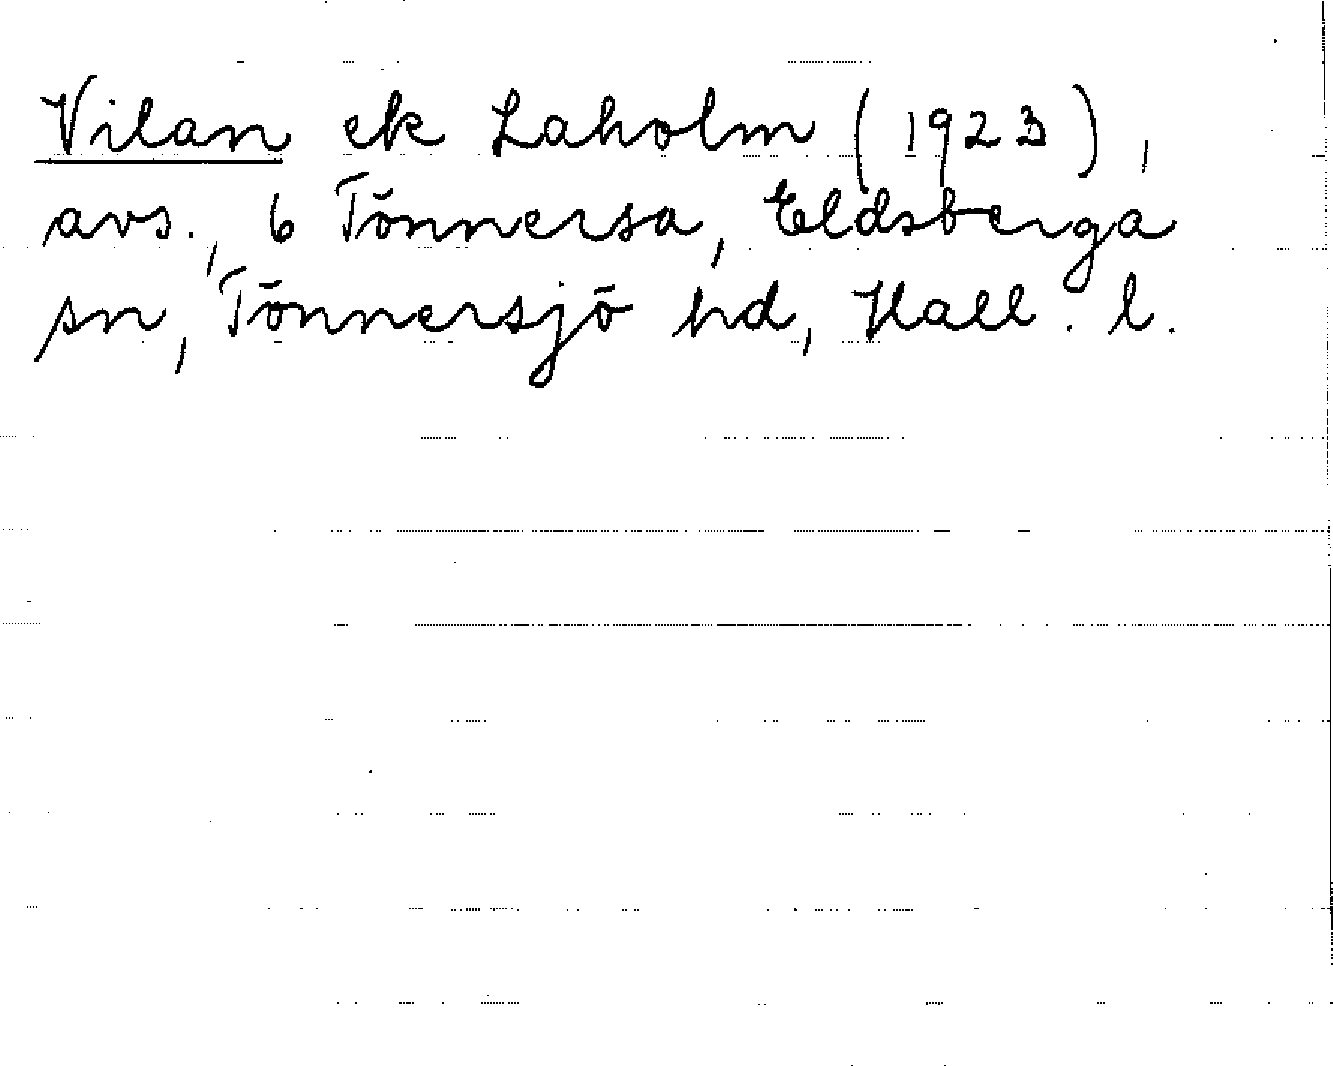 Vilan ek Laholm (1923),
avs., 6 Tönnersa, Eldsberga
sn, Tönnersjö hd, Hall. l.